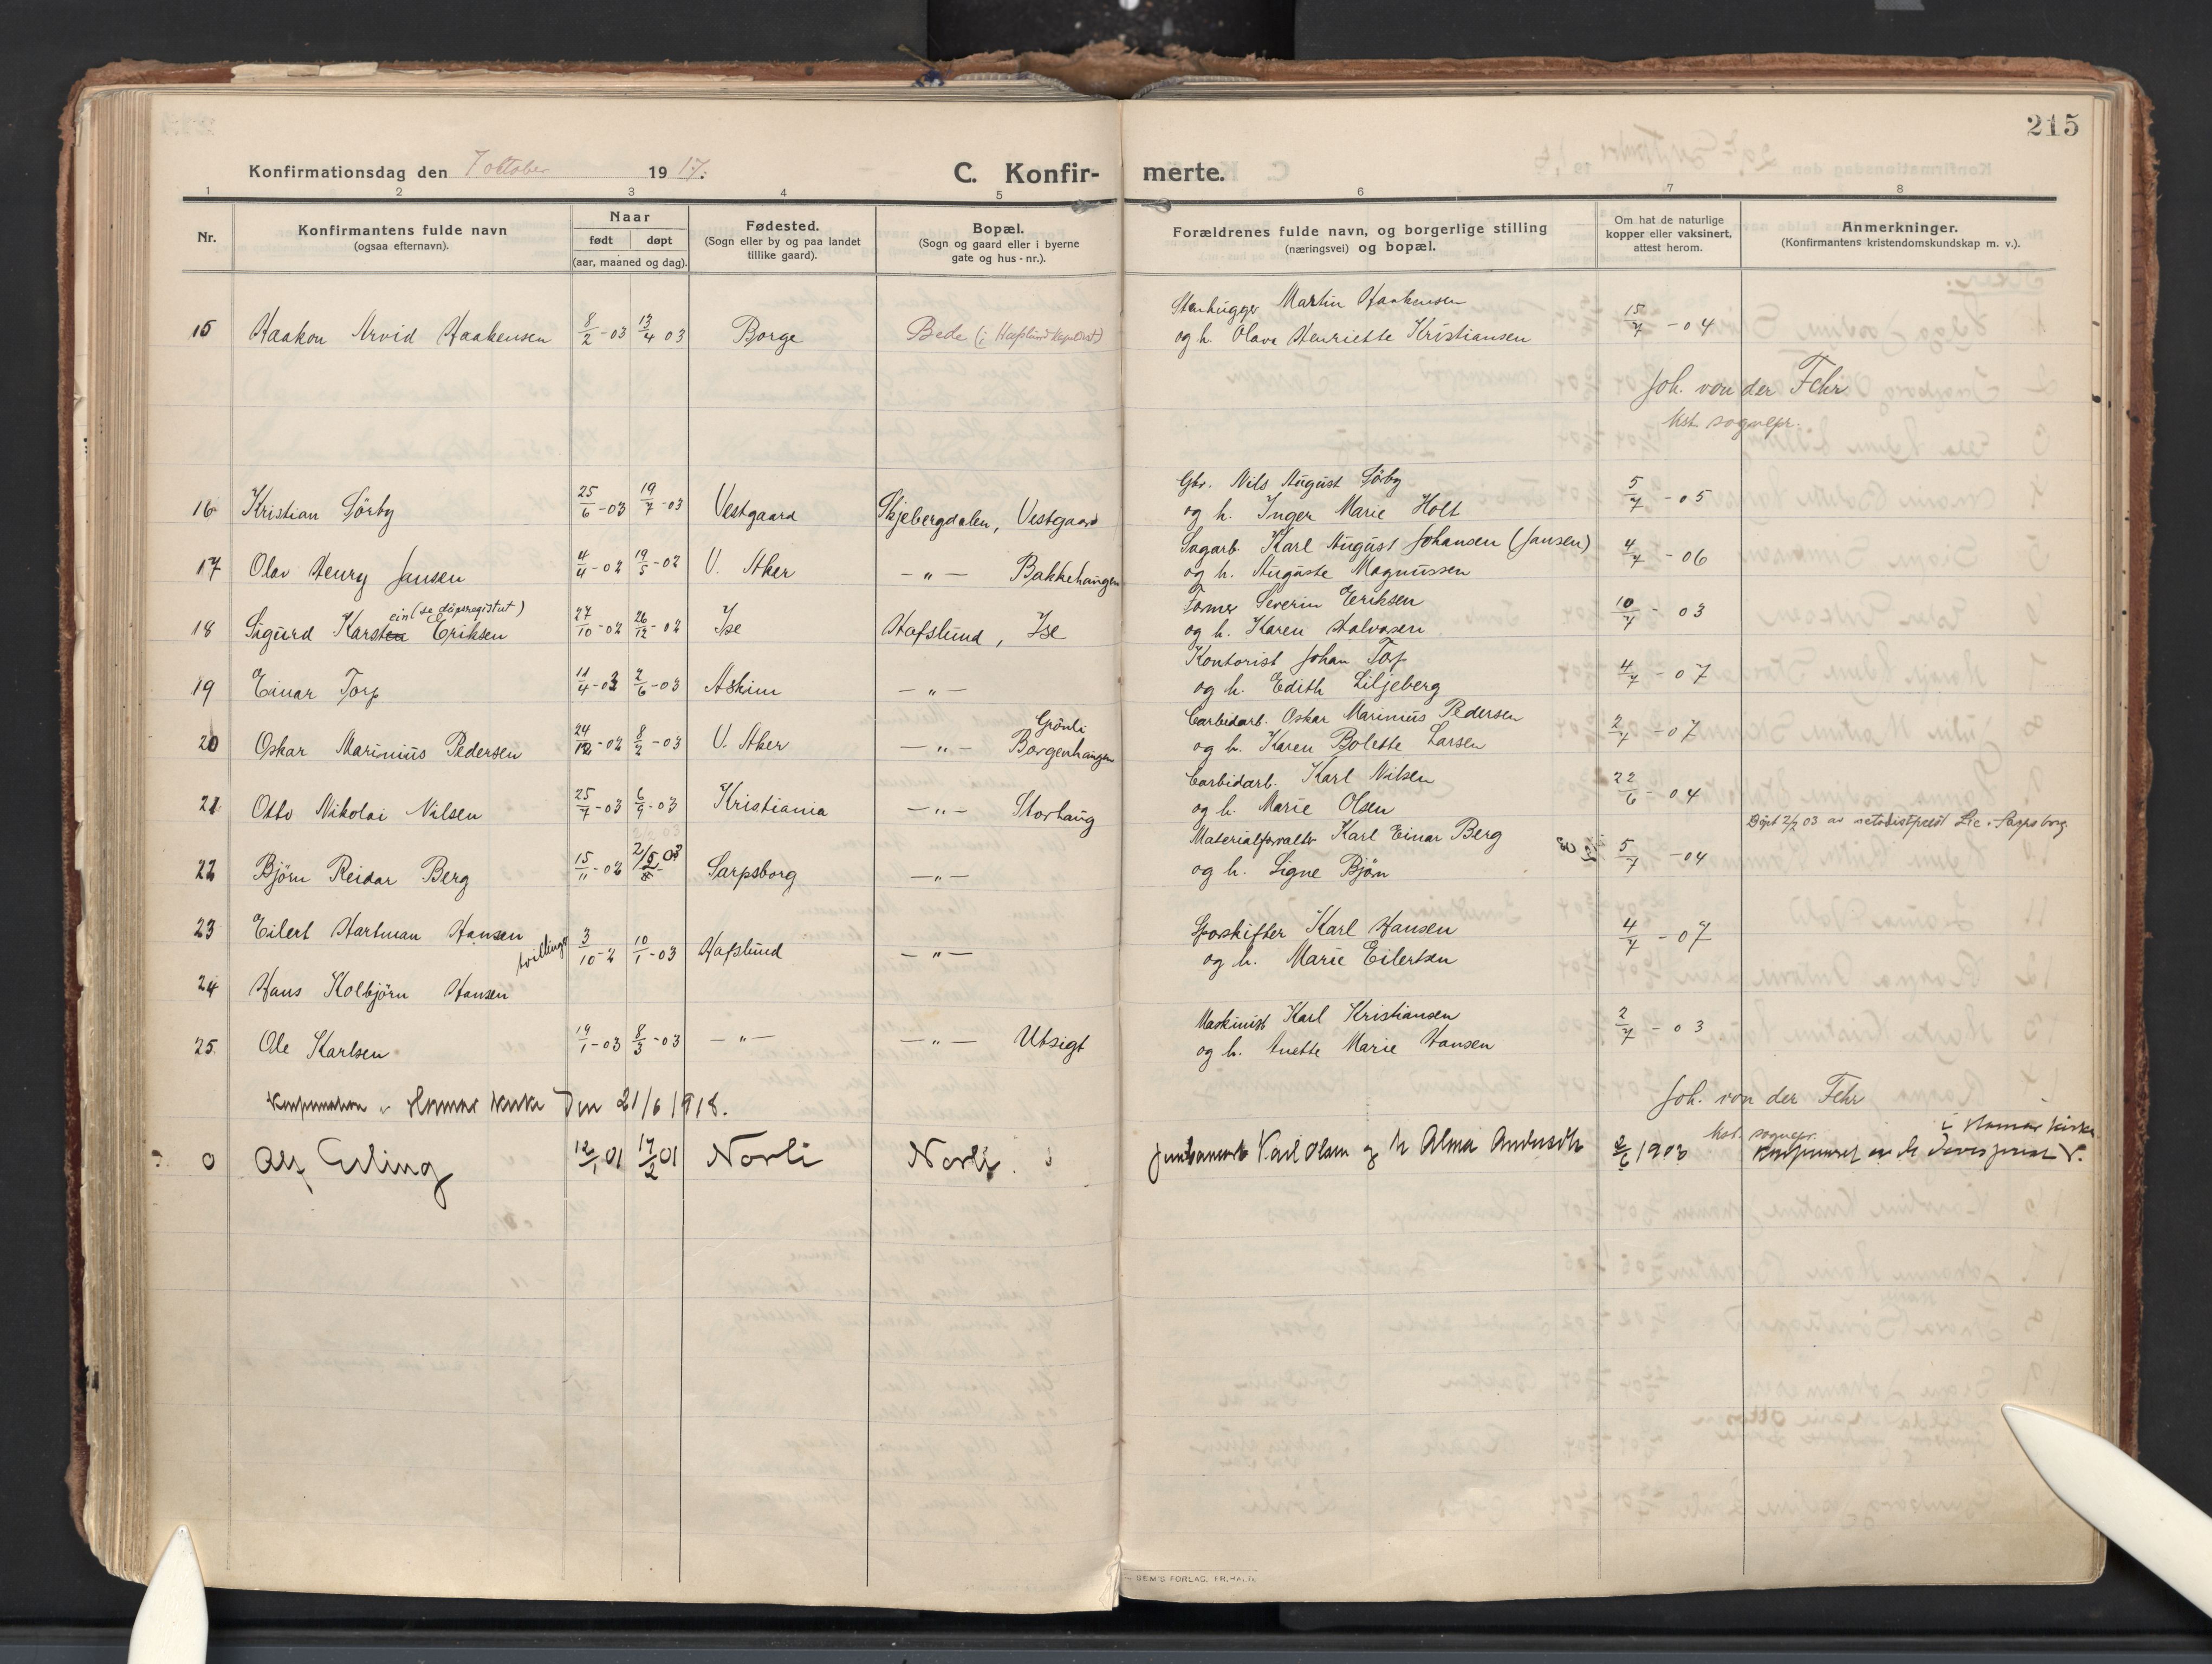 215
Konfirmationsdag den 7 october 1917. C. Konfirmerte.
1 2 3 4 5 6 7 8
Nr. Konfirmantens fulde navn (ogsaa efternavn). Naar født døpt (aar, maaned og dag). Fødested. (Sogn eller by og paa landet tillike gaard). Bopæl. (Sogn og gaard eller i byerne gate og hus-nr.). Forældrenes fulde navn, og borgerlige stilling (næringsvei) og bopæl. Om hat de naturlige kopper eller vaksinert, attest herom. Anmerkninger. (Konfirmantens kristendomskundskap m. v.).
Stenhugger Martin Haakensen
15 Haakon Arvid Haakensen 8/2-03 13/4 03 Borge Bede (i Hafslund kapeldist) og h. Olava Henriette Kristiansen 15/7-04
Joh. von der Fehr
kst. sognepr.
Gbr. Nils August Sörby
16 Kristian Sörby 25/6-03 19/7-03 Vestgaard Skjebergdalen, Vestgaard og h. Inger Marie Holt 5/7-05
Sagarb. Karl August Johansen (Jansen)
17 Olav Henry Jansen 4/4-02 19/5-02 V. Aker -"- Bakkehaugen og h. Auguste Magnussen 4/7-06
ein (se döpsregistret) Former Severin Eriksen
18 Sigurd Karsten Eriksen 27/10-02 26/12-02 Ise Hafslund, Ise og h. Karen Halvorsen 10/7-03
Kontorist Johan Torp
19 Einar Torp 11/4-03 2/6-03 Askim -"- og h. Edith Liljeberg 4/7-07
Grönli Carbidarb. Oskar Marinius Pedersen
20 Oskar Marinius Pedersen 24/12-02 8/2-03 V. Aker -"- Borgenhaugen og h. Karen Bolette Larsen 2/7-07
Carbidarb. Karl Nilsen
21 Otto Nikolai Nilsen 25/7-03 6/9-03 Kristiania -"- Storhaug og h. Marie Olsen 22/6-04
Materialforvalter Karl Einar Berg Döpt 2/2 03 av metodistprest Lie i Sarpsborg
22 Björn Reidar Berg 15/11-02 2/5 03 Sarpsborg -"- og h. Signe Björn 5/7-04
23 Eilert Hartman Hansen tvillinger 3/10-2 10/1-03 Hafslund -"- Sporskifter Karl Hansen 4/7-07
og h. Marie Eilertsen
24 Hans Kolbjörn Hansen
Maskinist Karl Kristiansen
25. Ole Karlsen 19/1-03 8/3-03 -"- -"- Utsigt og h. Anette Marie Hansen 2/7-03
Konfirmation i Hamar kirke den 21/6 1918.
Joh. von der Fehr
kst. sognepr.
i Hamar kirke
0 Alf Erling 12/1 01 17/2 01 Norli Norli. Karl Olsen og h Alma Andersdtr 2/6 1903
SEM'S FORLAG, FR.HALD.